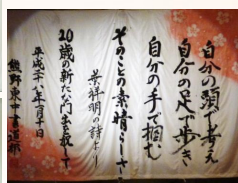 自分の頭で考え
自分の足で歩き
自分の手で掴む
そのことの素晴らしさ
葉祥明の詩より
20歳の新たな門出を祝して
平成二十八年一月十日
熊野東中書道部